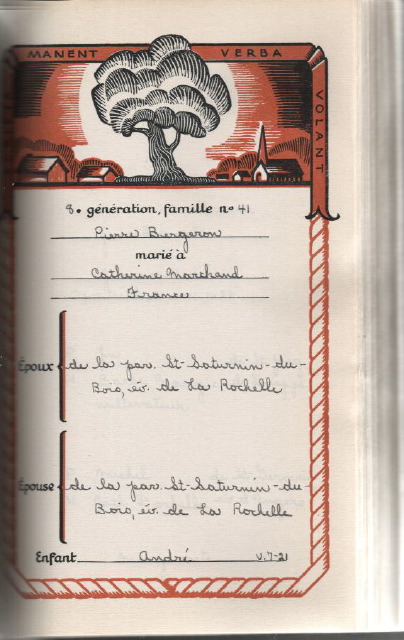 MANENT VERBA VOLANT
8e génération, famille no 41
Pierre Bergeron
marié à
Catherine Marchand
France
Époux de la par. St-Saturnin-du-
Bois, év. de La Rochelle
Épouse de la par. St-Saturnin-du-
Bois, év. de La Rochelle
Enfant André v.7-21